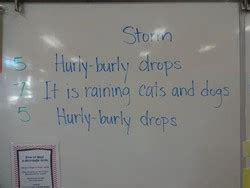 Storm
5 Hurly-burly drops
7 It is raining cats and dogs
5 Hurly-burly drops